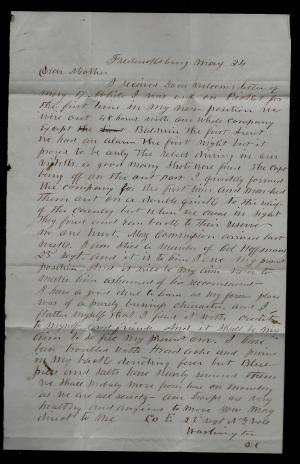 Fredericksburg May 24
Dear Mother
I received your welcome letter of
May 17 while I was out on Picket for
the first time in my new position we
were out 48 hours with our whole company
except Baldwin the first Lieut
we had an alarm the first night but it
proved to be only the rebels driving in our
a good many shots were fired The Capt
being off on the out post I quickly formed
the company for the first time and marched
them out on a double quick to the relief
of the cavalry but when we came in sight
they faced about and ran back to their
no one hurt My commission arrived last
I am still a member of Col
23 regt and it is to him I owe my present
position And it shall be my aim never to
make him ashamed of his recommend
I have a good deal to learn as my former place
was of a purely business character, and I
flatter myself that I filled it with credit
to myself and friends And it shall be my
aim to so fill my present one. I have
been troubled with Headache and pains
in my back, threatening fever but Blue
pills and salts have nearly removed them
we shall probably move from here on monday
as we are all ready our troops are very
healthy and anxious to move you may
direct to me Co 23 regt N Y Vols
Washington
D.C.